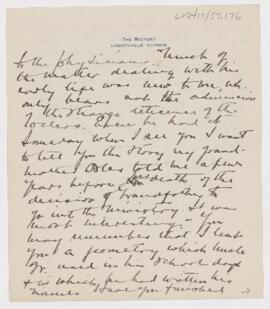 LUS4/17/57.176
THE RECTORY
LIBERTYVILLE ILLINOIS
to the physicians. Much of
the matter dealing with his
early life was new to me, wh.
only bears out the admission
of the strange reticence of the
Doctors. Once he had it
Someday when I see you I want
to tell you the story my grand-
mother told me a few
years before her death of the
decision of Grandfather to
go into the ministry. It was
most interesting. You
may remember that I lent
you a geometry which Uncle
Dr. used in his school days
& in which he had written his
name. Have you finished